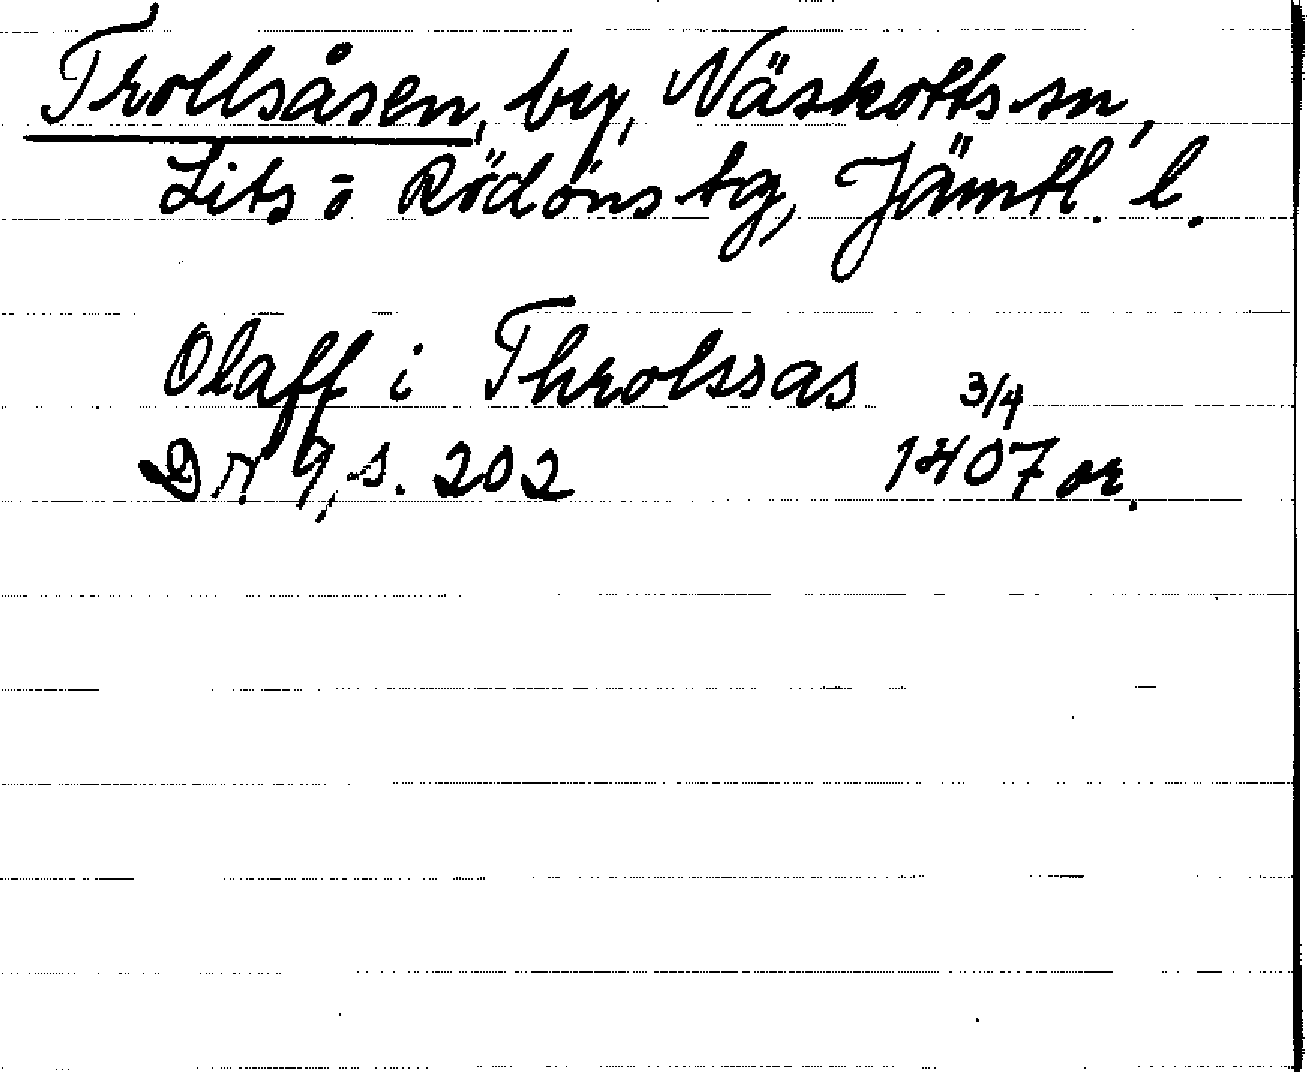 Trollsåsen, by, Näskotts sn,
Lits o Rödöns tg, Jämtl. l.
Olaff i Throlssas 3/4
DN 9, s. 202 1407 or.